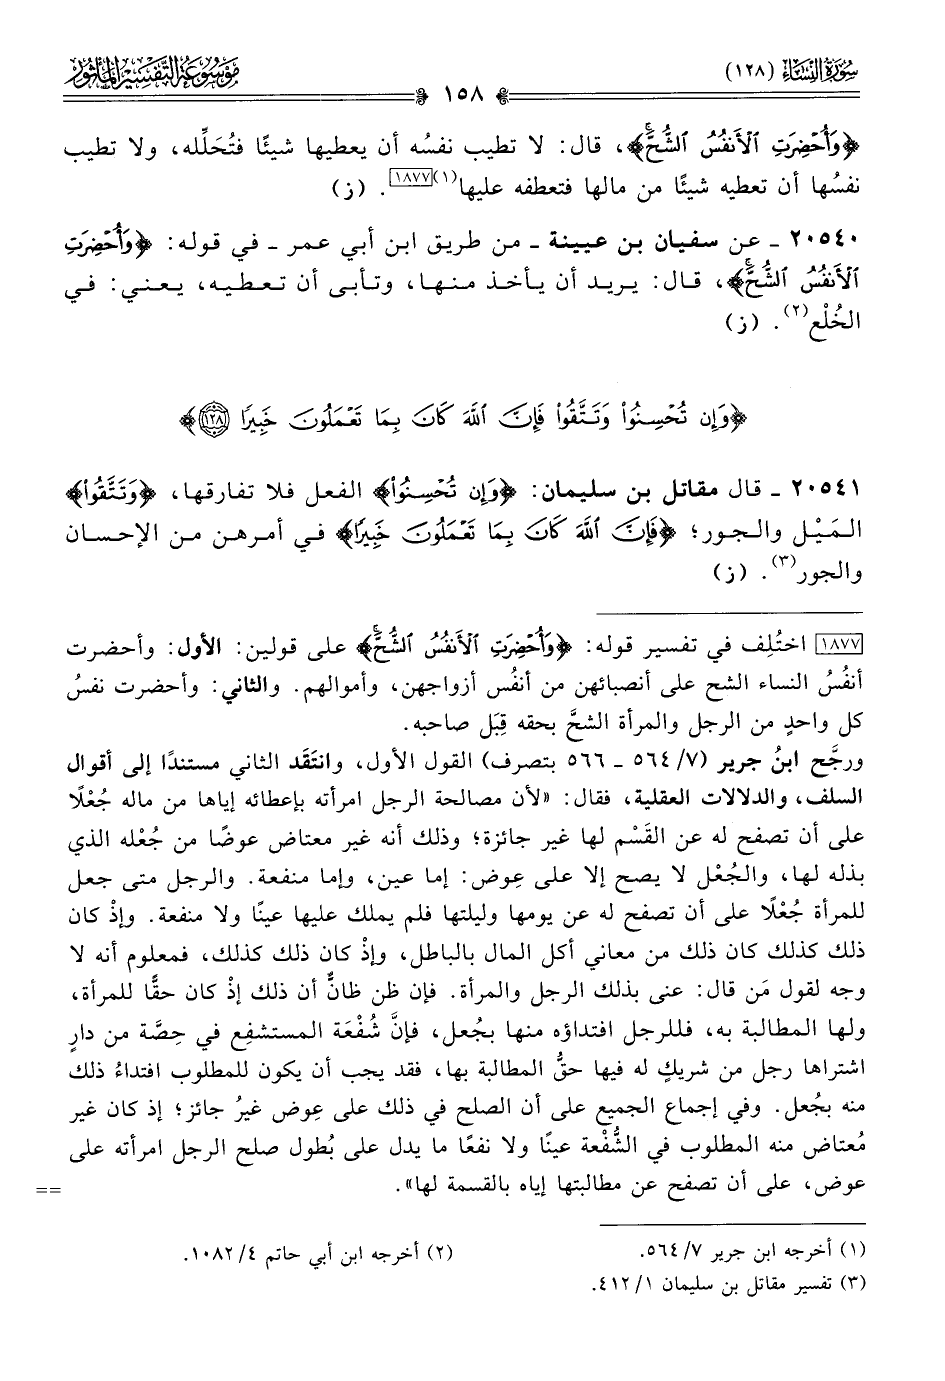 سُورَةُ النِّسَاءِ (١٢٨)
١٥٨
مَوْسُوعَةُ التَّفْسِيرِ المَأْثُورِ
﴿وَأُحْضِرَتِ ٱلْأَنفُسُ ٱلشُّحَّۚ﴾، قال: لا تطيب نفسُه أن يعطيها شيئًا فتُحَلِّله، ولا تطيب
نفسُها أن تعطيه شيئًا من مالها فتعطفه عليها(١)[١٨٧٧]. (ز)
٢٠٥٤٠ ـ عن سفيان بن عيينة ـ من طريق ابن أبي عمر ـ في قوله: ﴿وَأُحْضِرَتِ
ٱلْأَنفُسُ ٱلشُّحَّۚ﴾، قال: يريد أن يأخذ منها، وتأبى أن تعطيه، يعني: في
الخُلْع(٢). (ز)
﴿وَإِن تُحْسِنُوا۟ وَتَتَّقُوا۟ فَإِنَّ ٱللَّهَ كَانَ بِمَا تَعْمَلُونَ خَبِيرًا ١٢٨﴾
٢٠٥٤١ ـ قال مقاتل بن سليمان: ﴿وَإِن تُحْسِنُوا۟﴾ الفعل فلا تفارقها، ﴿وَتَتَّقُوا۟﴾
المَيْل والجور؛ ﴿فَإِنَّ ٱللَّهَ كَانَ بِمَا تَعْمَلُونَ خَبِيرًا﴾ في أمرهن من الإحسان
والجور(٣). (ز)
[١٨٧٧] اختُلِف في تفسير قوله: ﴿وَأُحْضِرَتِ ٱلْأَنفُسُ ٱلشُّحَّۚ﴾ على قولين: الأول: وأحضرت
أنفُسُ النساء الشح على أنصبائهن من أنفُس أزواجهن، وأموالهم. والثاني: وأحضرت نفسُ
كل واحدٍ من الرجل والمرأة الشحَّ بحقه قِبَل صاحبه.
ورجَّح ابنُ جرير (٧/ ٥٦٤ ـ ٥٦٦ بتصرف) القول الأول، وانتَقَد الثاني مستندًا إلى أقوال
السلف، والدلالات العقلية، فقال: «لأن مصالحة الرجل امرأته بإعطائه إياها من ماله جُعْلًا
على أن تصفح له عن القَسْم لها غير جائزة؛ وذلك أنه غير معتاض عوضًا من جُعْله الذي
بذله لها، والجُعْل لا يصح إلا على عِوض: إما عين، وإما منفعة. والرجل متى جعل
للمرأة جُعْلًا على أن تصفح له عن يومها وليلتها فلم يملك عليها عينًا ولا منفعة. وإذْ كان
ذلك كذلك كان ذلك من معاني أكل المال بالباطل، وإذْ كان ذلك كذلك، فمعلوم أنه لا
وجه لقول مَن قال: عنى بذلك الرجل والمرأة. فإن ظن ظانٌّ أن ذلك إذْ كان حقًّا للمرأة،
ولها المطالبة به، فللرجل افتداؤه منها بجُعل، فإنَّ شُفْعَة المستشفِع في حِصَّة من دارٍ
اشتراها رجل من شريكٍ له فيها حقُّ المطالبة بها، فقد يجب أن يكون للمطلوب افتداءُ ذلك
منه بجُعل. وفي إجماع الجميع على أن الصلح في ذلك على عِوض غيرُ جائز؛ إذ كان غير
مُعتاض منه المطلوب في الشُّفْعة عينًا ولا نفعًا ما يدل على بُطول صلح الرجل امرأته على
عوض، على أن تصفح عن مطالبتها إياه بالقسمة لها».
==
(١) أخرجه ابن جرير ٧/ ٥٦٤.
(٢) أخرجه ابن أبي حاتم ٤/ ١٠٨٢.
(٣) تفسير مقاتل بن سليمان ١/ ٤١٢.